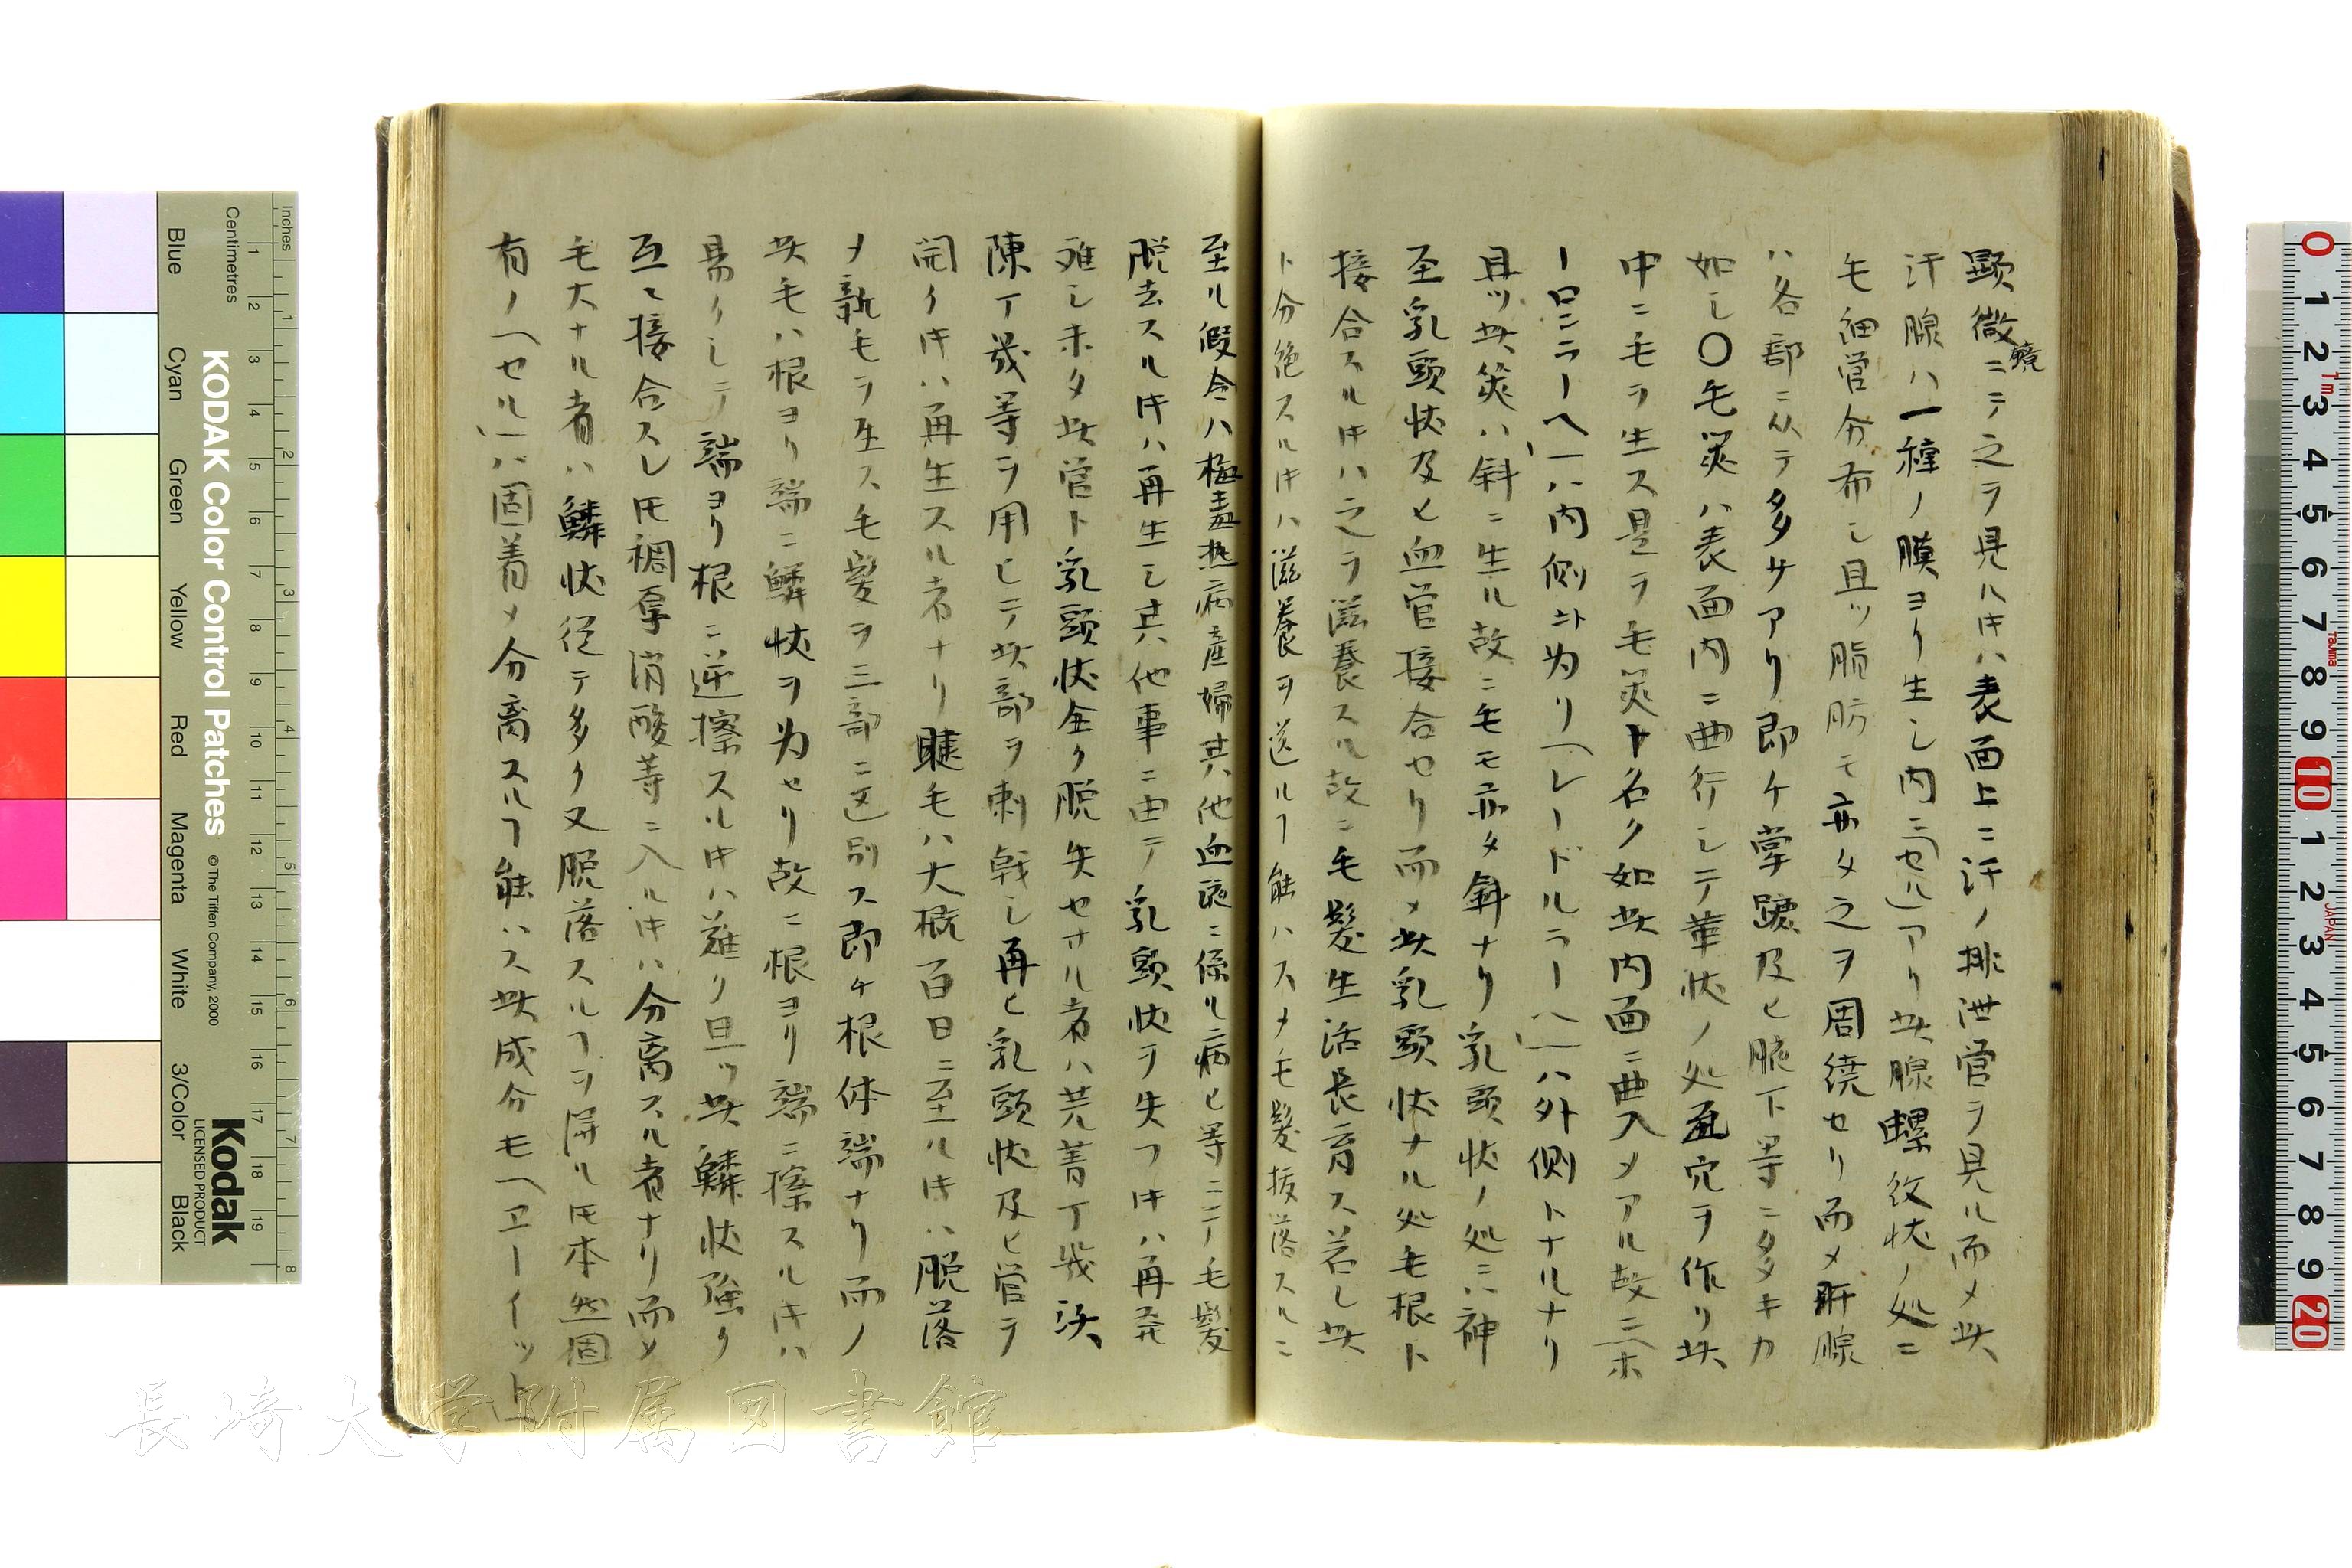 顕微鏡ニテ之ヲ見ル𪜈ハ表面上ニ汗ノ排泄管ヲ見ル而メ此
汗腺ハ一種ノ膜ヨリ生シ内ニ(セル)アリ此腺螺紋状ノ処ニ
毛細管分布シ且ツ脂肪モ亦タ之ヲ周繞セリ而メ肝腺
ハ各部ニ从テ多サアリ即ケ掌蹠及ヒ腋下等ニ多キカ
如シ〇毛嚢ハ表面内ニ曲行シテ華状ノ処孟穴ヲ作リ此
中ニ毛ヲ生ス是ヲ毛嚢ト名ク如此内面ニ曲入メアル故ニ(ホ
ーロニラーヘ)ハ内側ト為リ(レードルラーヘ)ハ外側トナルナリ
且ツ此嚢ハ斜ニ生ル故ニ毛モ亦タ斜ナリ乳頭状ノ処ニハ神
至乳頭状及ヒ血管接合セリ而メ此乳頭状ナル処毛根ト
接合スル𪜈ハ之ヲ滋養スル故ニ毛髪生活長育ス若シ此
ト分絶スル𪜈ハ滋養ヲ送ルヿ能ハスメ毛髪抜落スルニ
至ル假令ハ梅毒熱病産婦其他血液ニ係ル病ヒ等ニテノ毛髪
脱去スル𪜈ハ再生シ其他事ニ由テ乳頭状ヲ失フ𪜈ハ再発
难シ未タ此管ト乳頭状全ク脱失セサル者ハ芫菁丁幾沃
陳丁幾等ヲ用ヒテ此部ヲ刺戟シ再ヒ乳頭状及ヒ管ヲ
開ク𪜈ハ再生スル者ナリ睫毛ハ大概百日ニ至ル𪜈ハ脱落
メ新毛ヲ生ス毛髪ヲ三部ニ区別ス即ケ根体端ナリ而ノ
此毛ハ根ヨリ端ニ鱗状ヲ為セリ故ニ根ヨリ端ニ擦スル𪜈ハ
易クシテ端ヨリ根ニ逆擦スル𪜈ハ難ク且ツ此鱗状強ク
互ニ接合スレ𪜈稠厚消酸等ニ入ル𪜈ハ分离スル者ナリ而メ
毛大ナル者ハ鱗状従テ多ク又脱落スルヿヲ得ル𪜈本然固
有ノ(セル)ハ固着メ分离スルヿ能ハス此成分モ(ヱーイット)
Inches
Centimetres
KODAK Color Control Patches
© The Tiffen Company, 2000
Kodak
LICENSED PRODUCT
Blue
Cyan
Green
Yellow
Red
Magenta
White
3/Color
Black
長崎大学附属図書館
JAPAN